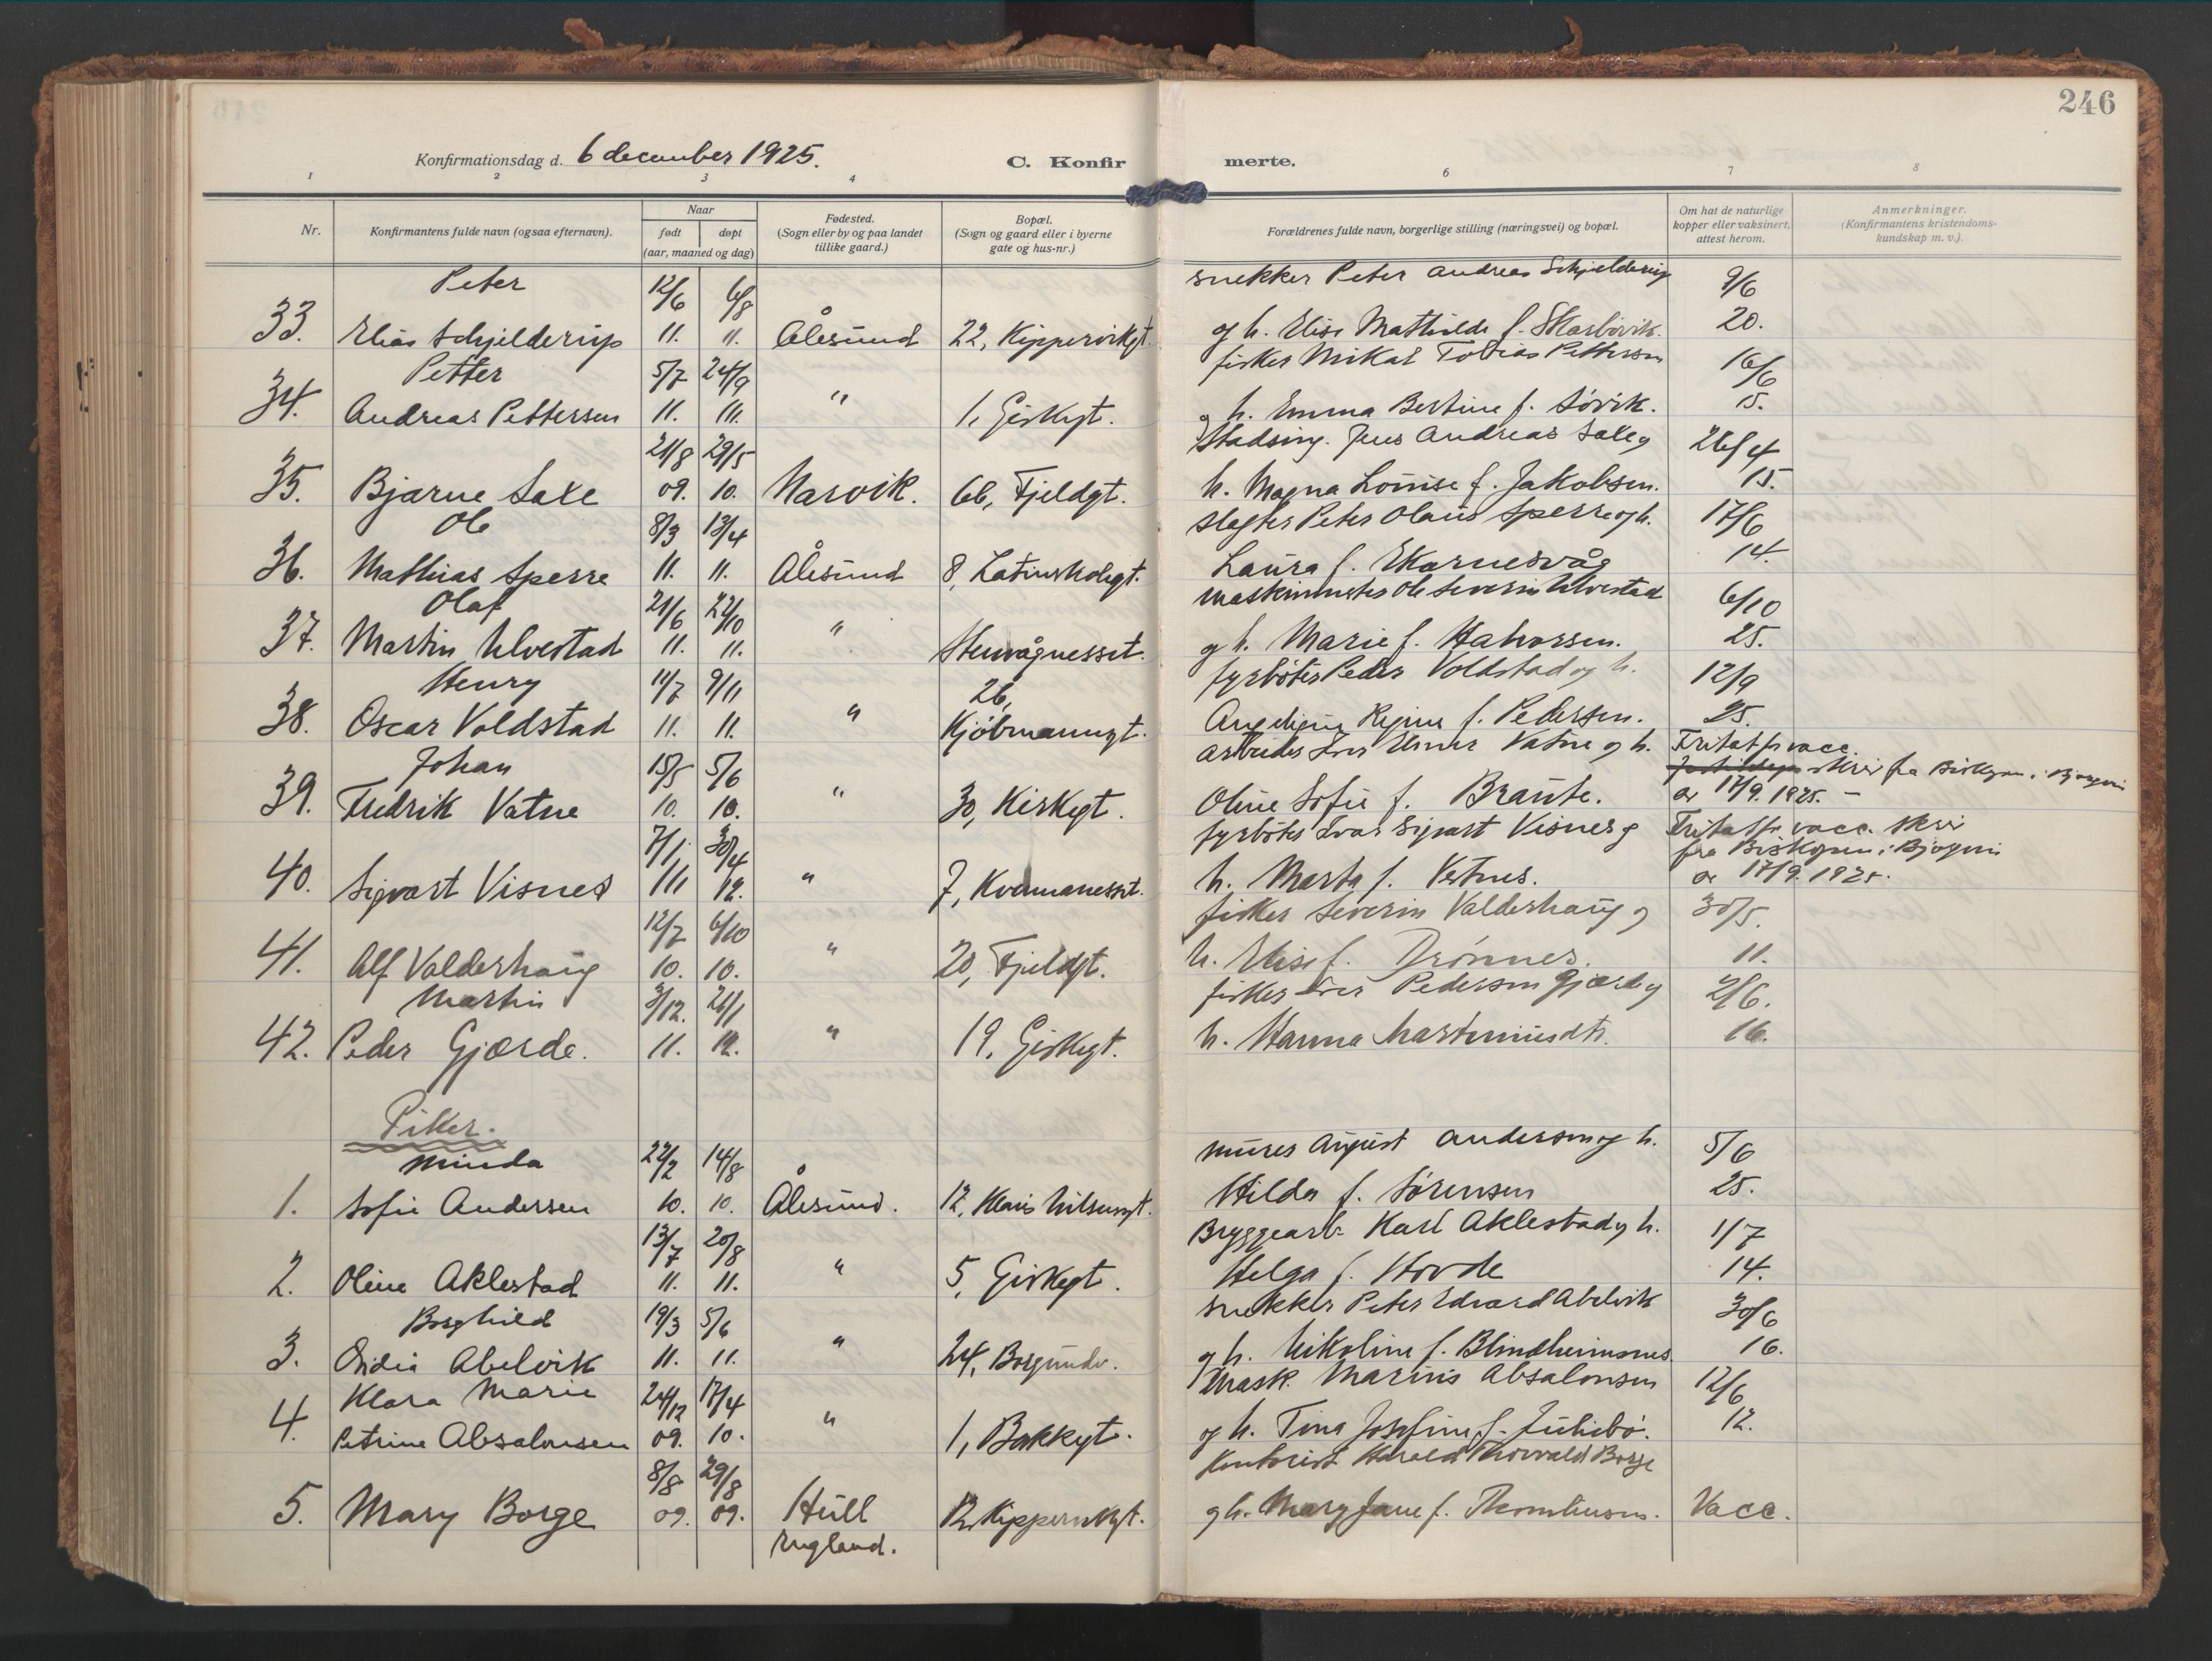 246
Konfirmationsdag d. 6 december 1925.
C. Konfirmerte.
1 2 3 4 6 7 8
Nr.
Konfirmantens fulde navn (ogsaa efternavn).
Naar
født døpt
(aar, maaned og dag)
Fødested.
(Sogn eller by og paa landet
tillike gaard.)
Bopæl.
(Sogn og gaard eller i byerne
gate og hus-nr.)
Forældrenes fulde navn, borgerlige stilling (næringsvei) og bopæl.
Om hat de naturlige
kopper eller vaksinert,
attest herom.
Anmerkninger.
(Konfirmantens kristendoms-
kundskap m. v.).
Peter 12/6 6/8 snekker Peter Andreas Schjelderup 9/6
33. Elias Schjelderup 11. 11. Ålesund 22, Kippervikgt. og h. Elise Mathilde f. Skarbövik. 20.
Petter 5/7 24/9 fisker Mikal Tobias Pettersen 16/6
34. Andreas Pettersen 11. 11. " 1, Giskegt. og h. Emma Bertine f. Søvik. 15.
21/8 29/5 Stadsing. Jens Andreas Saxe og 26/4
35. Bjarne Saxe 09. 10. Narvik. 6b, Fjeldgt. h. Magna Louise f. Jakobsen. 15.
Ole 8/3 13/4 slagter Peter Olaus Sperre og h. 17/6
36. Mathias Sperre 11. 11. Ålesund 8, Latinskolegt. Laura f. Ekornesvåg 14.
Olaf 21/6 22/10 maskinmster Ole Severin Ulvestad 6/10
37. Martin Ulvestad 11. 11. " Stenvågnesset. og h. Marie f. Halvorsen. 25.
Henry 11/7 9/11 26, fyrböter Peder Voldstad og h. 12/9
38. Oscar Voldstad 11. 11. " Kjöbmannsgt. Regine f. Pedersen. 25.
Johan 15/5 5/6 arbeider Iver Elmer Vatne og h. Fritat fr vacc.
39. Fredrik Vatne 10. 10. " 30, Kirkegt. Oline Sofie f. Braute. skriv fra Biskopen i Bjørgvin
av 17/9. 1925. –
7/1 30/4 fyrböter Ivar Sigvart Visnes og Fritat fr vacc. skriv
40. Sigvart Visnes 11. 12. " 7, Kvennanesset. h. Marta f. Vestnes. fra Biskopen i Bjørgvin
av 17/9. 1925.
12/7 6/10 fisker Severin Valderhaug og 30/5.
41. Alf Valderhaug 10. 10. " 20, Fjeldgt. h. Elise f. Drönnes. 11.
Martin 3/12. 21/1 fisker Iver Pedersen Gjærde og 2/6.
42. Peder Gjærde. 11. 12. " 19, Giskegt. h. Hanna Martinusdtr. 16.
Piker.
Minda 22/2 14/8 murer August Andersen og h. 5/6
1. Sofie Andersen 10. 10. Ålesund. 12, Klaus Nilsensgt. Hilda f. Sørensen 25.
13/7 20/8 Bryggearb. Karl Aklestad og h. 1/7
2. Oline Aklestad 11. 11. " 5, Giskegt. Helga f. Hovde 14.
Borghild 19/3 5/6 snekker Peter Edvard Abelvik 30/6
3. Abelvik 11. 11. " 24, Borgundv. og h. Nikoline f. Blindheimsnes. 16.
Klara Marie 24/12 17/4 Mask. Marius Absalonsen 12/6
4. Petrine Absalonsen 09. 10. " 1, Bakkegt. og h. Tina Josefine f. Julibö. 12.
8/8 29/8 Kontorist Harald Thorvald Borge
5. Mary Borge 09. 09. Hull 12, Kippervikgt. og h. Mary Jane f. Thomlinson. Vacc.
England.